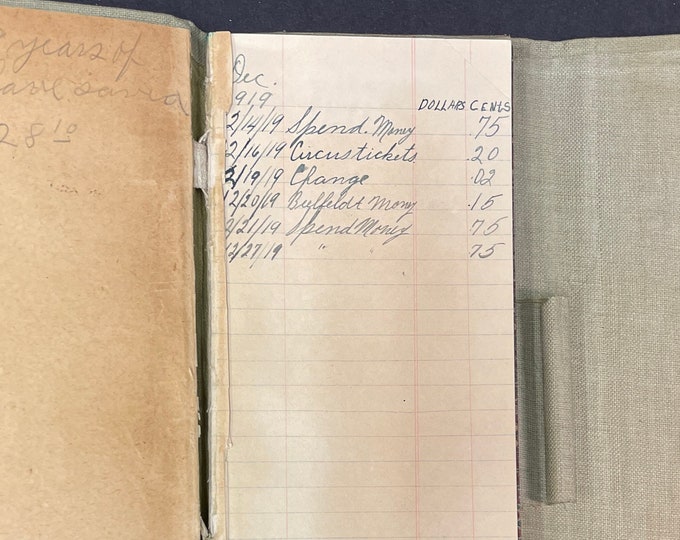 years of
saved
28 10
Dec.
1919
DOLLARS CENTS
12/14/19 Spend. Money .75
12/16/19 Circus tickets .20
12/19/19 Change .02
12/20/19 Money .15
12/21/19 Spend Money .75
12/27/19 " " .75